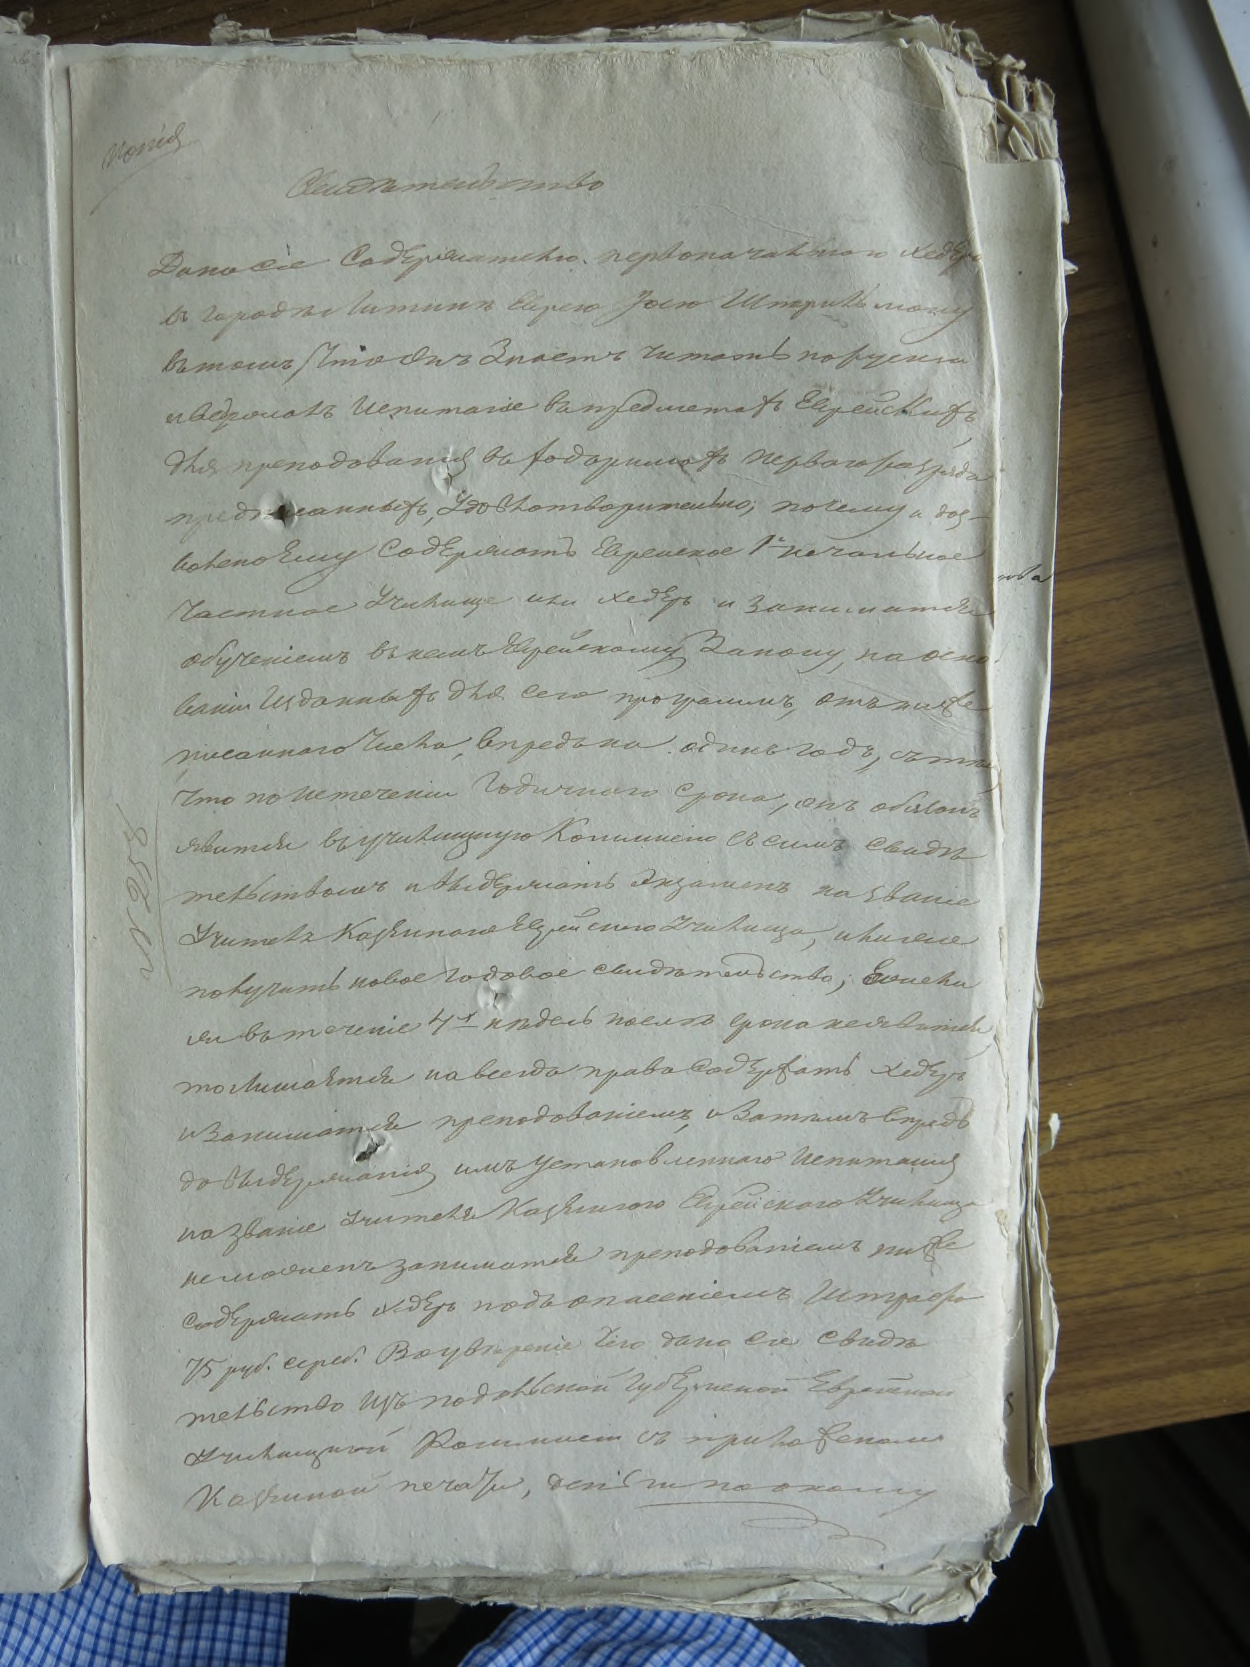 Копія
Свидѣтельство
Дано сіе Содержателю первоначальнаго хедера
въ городѣ Литинѣ Еврею Іосю Штрикьману
въ томъ что онъ Знаетъ читать порусски
и выдержалъ Испытаніе въ предметахъ Еврейскихъ
для преподаванія въ хедеримахъ перваго разряда
предписанныхъ, Удовлетворительно; почему и доз-
волено Ему Содержать Еврейское 1е начальное
Частное Училище или хедеръ и заниматся
обученіемъ въ немъ Еврейскому Закону, на осно
ваніи Изданныхъ для сего программъ, отъ ниже
писаннаго Числа, впредь на одинъ годъ, съ тѣмъ
Что по Истеченіи Годичнаго Срока, онъ обязанъ
явится въ училищную Коммисію съ симъ свидѣ
тельствомъ и выдержать Экзаменъ на званіе
Учителя Казеннаго Еврейскаго Училища, или же
получить новое годовое свидѣтельство; Если
въ теченіе 4х недѣль послѣ срока неявится
то лишается навсегда права Содержать хедеръ
и Заниматся преподаваніемъ, и Затѣмъ впредь
до Выдержанія имъ установленнаго Испытанія
на Званіе Учителя Казеннаго Еврейского Училища
неможетъ заниматся преподаваніемъ ниже
содержать хедеръ подъ опасеніемъ Штрафа
75 руб. сереб. Во увѣреніе чего дано сіе свидѣ
тельство Изъ подольской Губернской Еврейской
Училищной Коммисіи съ приложеніемъ
Казенной печати,